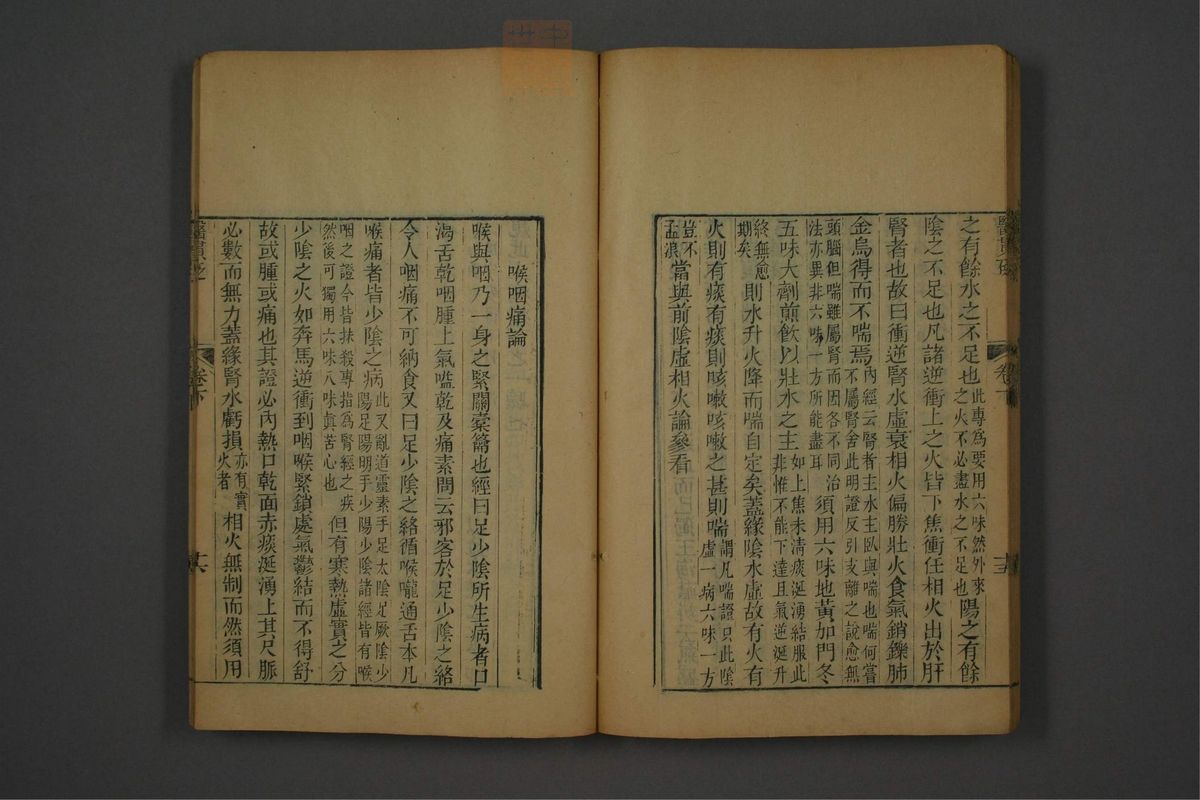 之有餘水之不足也此專為要用六味然外來之火不必盡水之不足也陽之有餘
陰之不足也凡諸逆衝上之火皆下焦衝任相火出於肝
腎者也故曰衝逆腎水虛衰相火偏勝壯火食氣銷鑠肺
金烏得而不喘焉內經云腎者主水主臥與喘也喘何嘗不屬腎舍此明證反引支離之說愈無
頭腦但喘雖屬腎而因各不同治法亦異非六味一方所能盡耳須用六味地黃加門冬
五味大劑煎飲以壯水之主如上焦未清痰涎湧結服此非惟不能下達且氣逆涎升
終無愈期矣則水升火降而喘自定矣蓋緣陰水虛故有火有
火則有痰有痰則咳嗽咳嗽之甚則喘謂凡喘證只此陰虛一病六味一方
豈不孟浪當與前陰虛相火論參看
醫貫砭
卷下
十五
喉咽痛論
喉與咽乃一身之緊關橐籥也經曰足少陰所生病者口
渴舌乾咽腫上氣嗌乾及痛素問云邪客於足少陰之絡
令人咽痛不可納食又曰足少陰之絡循喉嚨通舌本凡
喉痛者皆少陰之病此又亂道靈素手足太陰足厥陰少陽足陽明手少陽少陰諸經皆有喉
咽之證今皆抹殺專指為腎經之疾然後可獨用六味八味眞苦心也但有寒熱虛實之分
少陰之火如奔馬逆衝到咽喉緊鎖處氣鬱結而不得舒
故或腫或痛也其證必內熱口乾面赤痰涎湧上其尺脈
必數而無力蓋緣腎水虧損亦有實火者相火無制而然須用
醫貫砭
卷下
十六